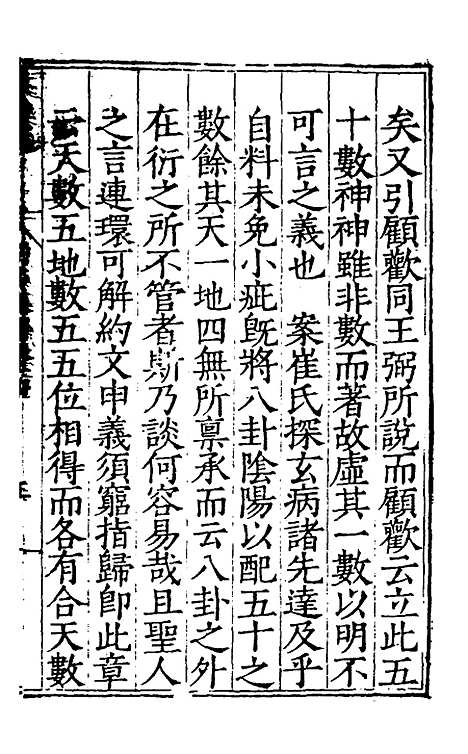 矣又引顧歡同王弼所說而顧歡云立此五
十數神神雖非數而著故虛其一數以明不
可言之義也　案崔氏探玄病諸先達及乎
自料未免小疵旣將八卦陰陽以配五十之
數餘其天一地四無所禀承而云八卦之外
在衍之所不管者斯乃談何容易哉且聖人
之言連環可解約文申義須窮指歸卽此章
云天數五地數五五位相得而各有合天數